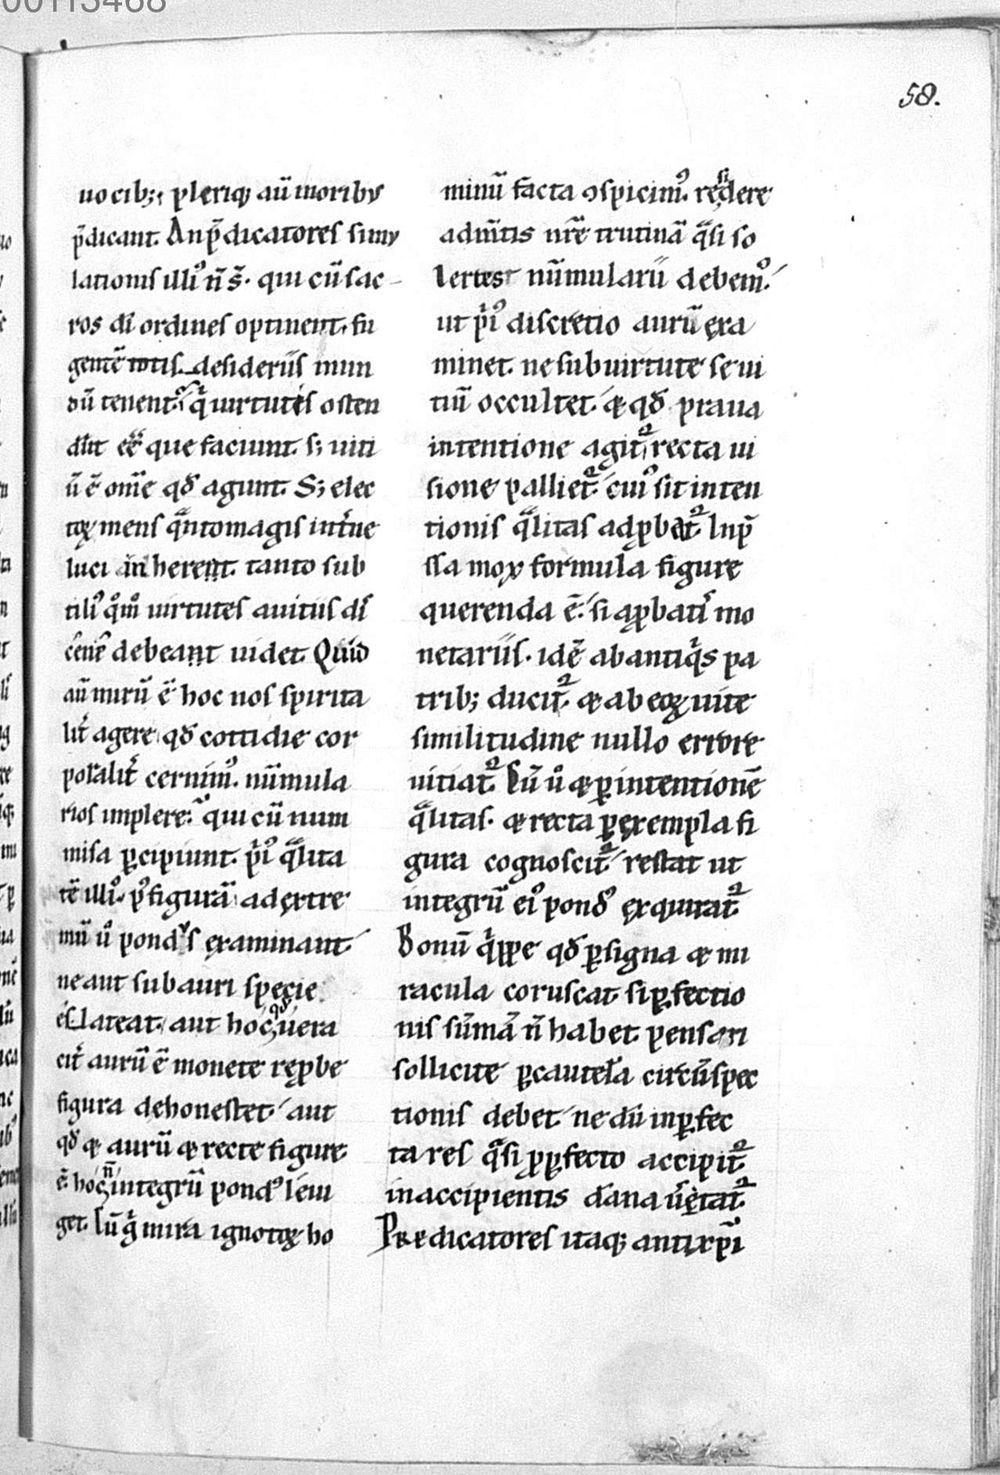 00113468
58.
uocib;; pleriq; aū moribꝯ
p̄dicant. An p̄dicatores simꝯ
lationis illiꝰ n̄ s̄. qui cū sac-
ros dī ordines optinent. fu
gientē totis desideriis mun
dū tenent. q̇ uirtutes osten
dūt ēē que faciunt. s; uiti
ū ē om̄e qđ agunt. S; elec
toꝝ mens q̄ntomagis int̄ne
luci inherent. tanto sub
tiliꝰ q̄m̊ uirtutes auitiis dis
c̄n̄e debeant uidet. Quid
aū mirū ē hoc nos spirita
lit̄ agere qđ cottidie cor
poralit̄ cernimꝰ. nūmula
rios implere. qui cū num
misa ꝑcipiunt. p̄iꝰ q̄lita
tē illiꝰ. pꝰ figurā adextre
mū ů pondꝰs examinant
ne aut sub auri specie
es lateat. aut hoc qđ uera
cit̄ aurū ē monete reꝓbe
figura dehonestet. aut
qđ ⁊ aurū ⁊ recte figure
ē hoc n̄ integrū pondꝰ leui
get. Cū g̊ mira ignotoꝝ ho
minū facta ꝯspicimꝰ. reddere
adm̄tis nr̄e trutinā q̄si so
lertes nūmularii debemꝰ.
ut p̄iꝰ discretio aurū exa
minet. ne sub uirtute se ui
tiū occultet. ⁊ qđ praua
intentione agit᷑ recta ui
sione palliet᷑. cuiꝰ sit inten
tionis q̄litas adꝓbat᷑. Inp̄
ssa mox formula figure
querenda ē. si aꝓbatis mo
netariis. idē abantiq̇s pa
trib; ducit᷑. ⁊ ab eoꝝ uite
similitudine nullo errore
uitiat᷑. Cū ů ⁊ ꝑ intentionē
q̄litas. ⁊ recta ꝑ exempla fi
gura cognoscit᷑. restat ut
integrū eiꝰ pondꝰ exquirat᷑.
Bonū q̇ppe qđ ꝑ signa ⁊ mi
racula coruscat si ꝑfectio
nis sūmā n̄ habet. pensari
sollicite ꝑ cautela circūspec
tionis debet. ne dū inꝑfec
ta res q̄si ꝓ ꝑfecto accipit᷑.
in accipientis dāna ūtat᷑.
Predicatores itaq; antixp̄i